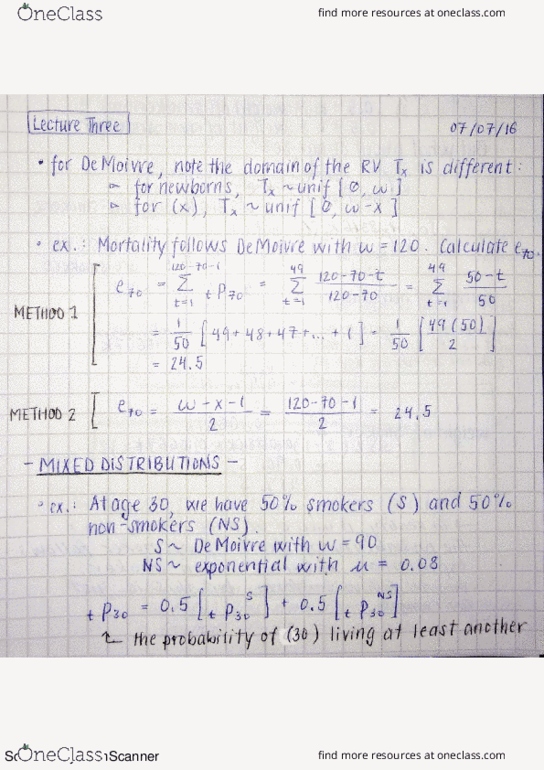 OneClass find more resources at oneclass.com
Lecture Three 07/07/16
• for DeMoivre, note the domain of the RV Tx is different:
▹ for newborns, Tx ~ unif [0, ω]
▹ for (x), Tx ~ unif [0, ω-x]
• ex.: Mortality follows DeMoivre with ω = 120. Calculate e₇₀.
METHOD 1
e₇₀ = Σ_{t=1}^{120-70-1} ₜP₇₀ = Σ_{t=1}^{49} (120-70-t)/(120-70) = Σ_{t=1}^{49} (50-t)/50
= 1/50 [49+48+47+...+1] = 1/50 [49(50)/2]
= 24.5
METHOD 2 e₇₀ = (ω-x-1)/2 = (120-70-1)/2 = 24.5
- MIXED DISTRIBUTIONS -
• ex.: At age 30, we have 50% smokers (S) and 50%
non-smokers (NS).
S ~ DeMoivre with ω = 90
NS ~ exponential with μ = 0.08
ₜP₃₀ = 0.5 [ₜP₃₀^S] + 0.5 [ₜP₃₀^NS]
the probability of (30) living at least another
OneClass Scanner find more resources at oneclass.com